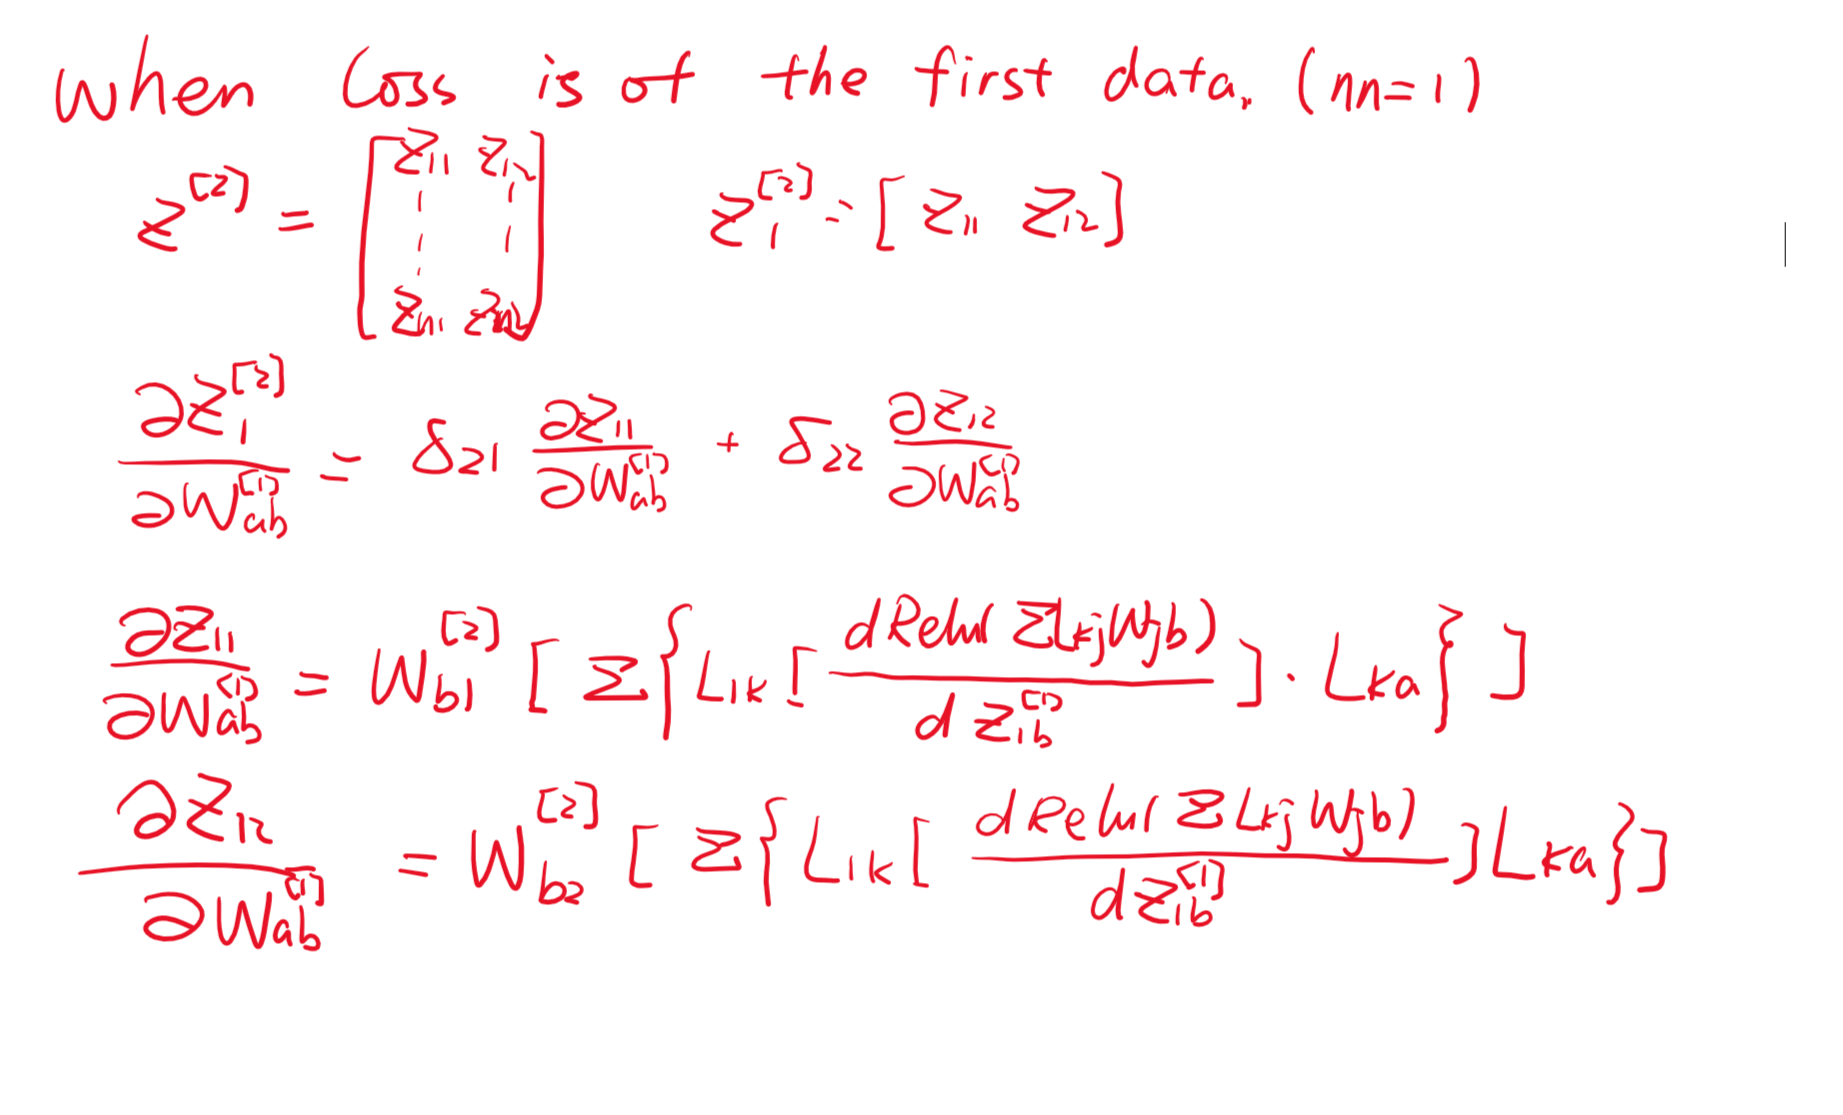 When Loss is of the first data. (nn=1)
Z^[2] = [Z11 Z12 ⋮ ⋮ Zn1 Zn2] Z1^[2] = [Z11 Z12]
∂Z1^[2]/∂Wab^[1] = δ21 ∂Z11/∂Wab^[1] + δ22 ∂Z12/∂Wab^[1]
∂Z11/∂Wab^[1] = Wb1^[2] [Σ{L1k[dRelu(ΣLkjWjb)/dZ1b^[1]]·Lka}]
∂Z12/∂Wab^[1] = Wb2^[2] [Σ{L1k[dRelu(ΣLkjWjb)/dZ1b^[1]]Lka}]